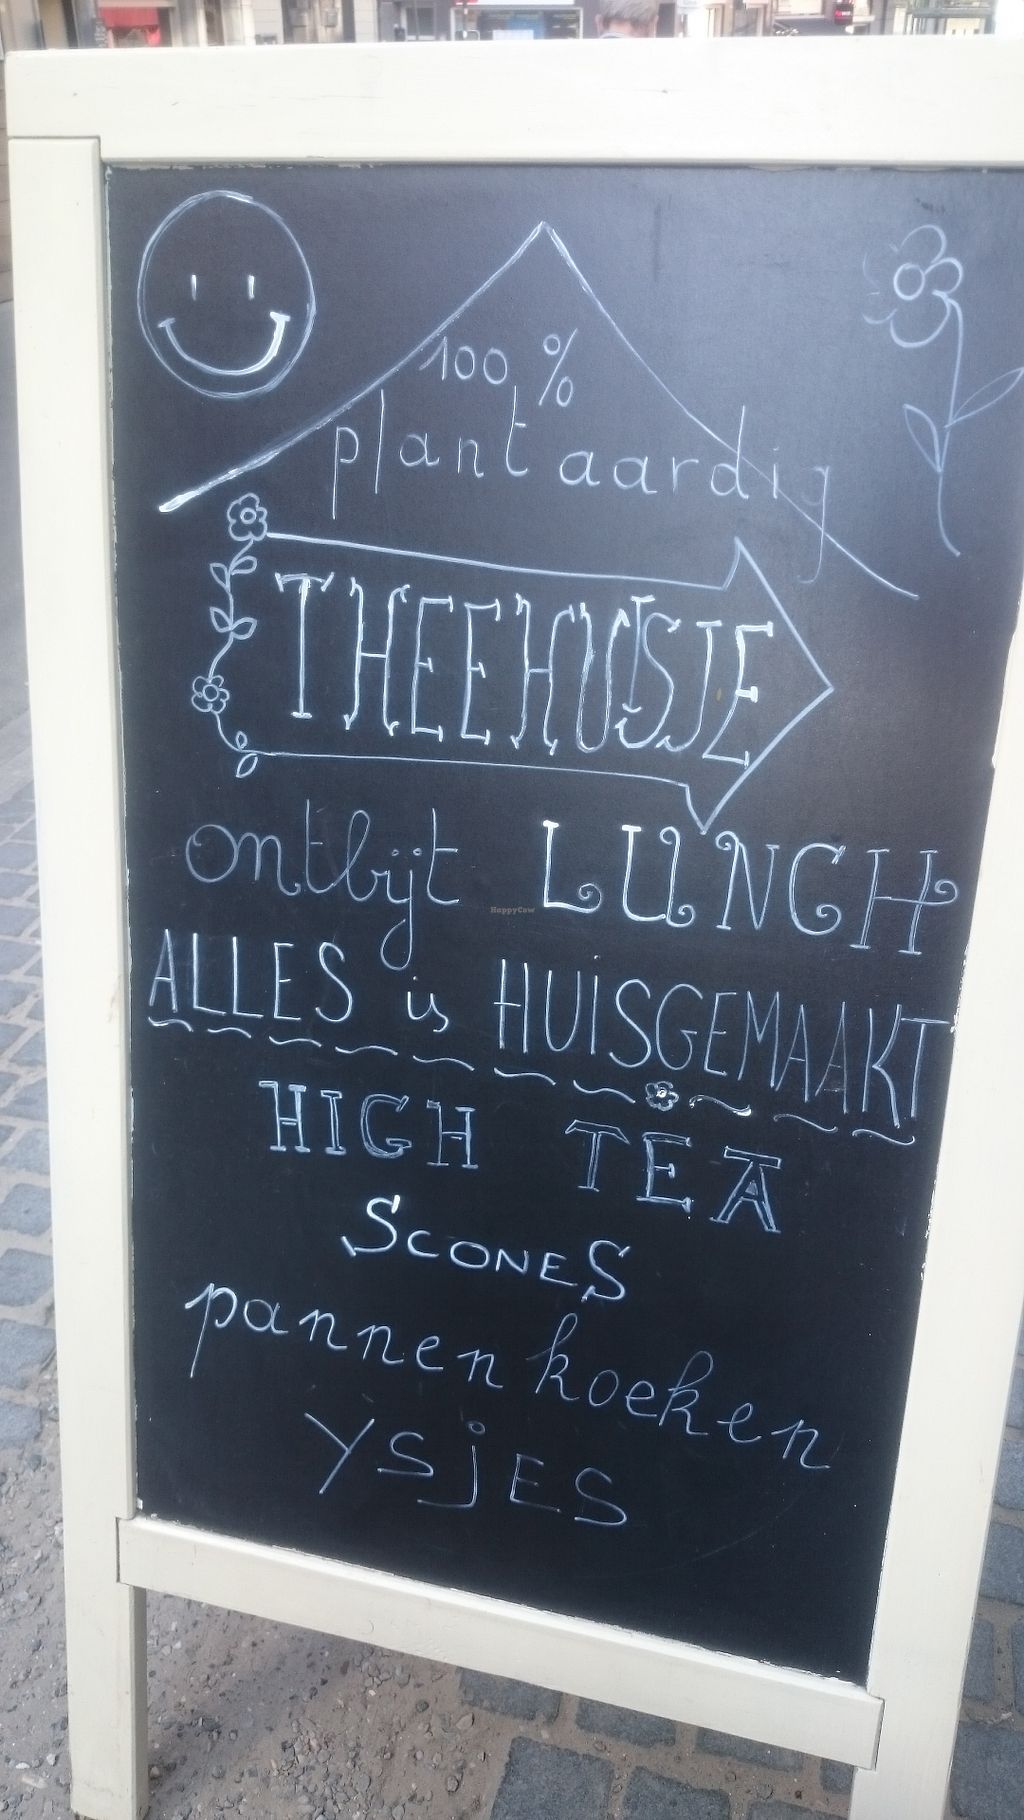 100 %
plantaardig
THEEHUISJE
ontbijt LUNCH
HappyCow
ALLES is HUISGEMAAKT
HIGH TEA
SCONES
pannenkoeken
YSjES